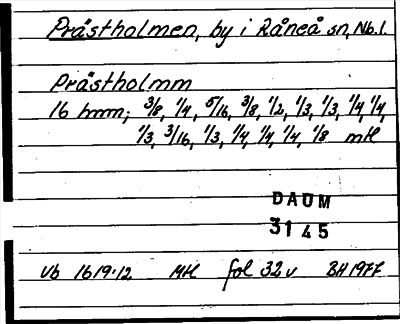 Prästholmen, by i Råneå sn, Nb. l.
Prästholmm
16 hmm; 3/8, 1/4, 5/16, 3/8, 1/2, 1/3, 1/3, 1/4, 1/4,
1/3, 3/16, 1/3, 1/4, 1/4, 1/4, 1/8 mtl
DAUM
3145
Vb 1619:12 Mtl fol 32 v BH 1977